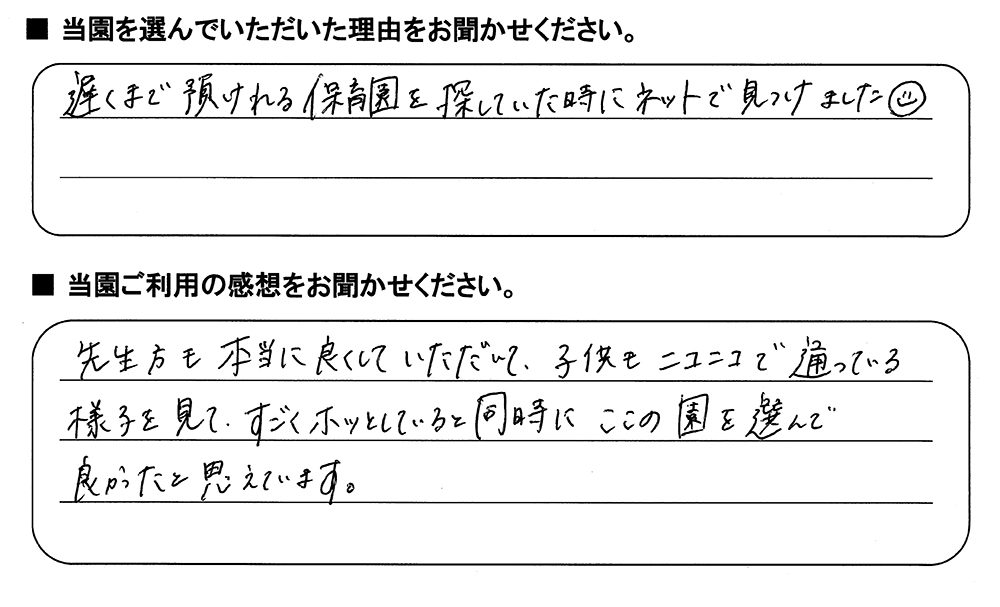 ■ 当園を選んでいただいた理由をお聞かせください。
遅くまで預けれる保育園を探していた時にネットで見つけました☺
■ 当園ご利用の感想をお聞かせください。
先生方も本当に良くしていただいて、子供もニコニコで通っている
様子を見て、すごくホッとしていると同時にここの園を選んで
良かったと思えています。